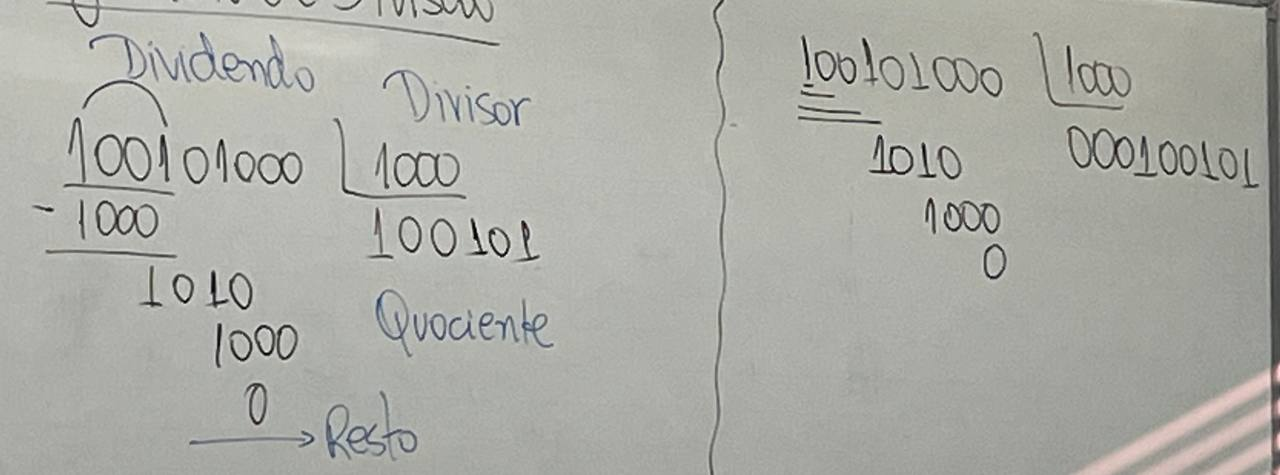 Divisão
Dividendo
Divisor
100101000 1000
- 1000
100101
1010
Quociente
1000
0
Resto
100101000 1000
1010 000100101
1000
0